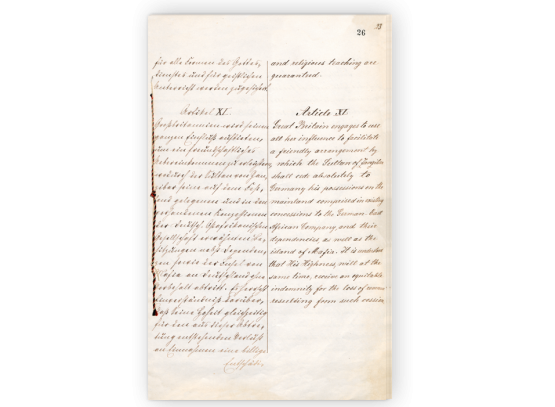 26
für alle Formen des Gottes,
dienstes und für geistlichen
Unterricht werden zugesichert.
Artikel XI.
Großbritannien wird seinen
ganzen Einfluß aufbieten,
um ein freundschaftliches
Uebereinkommen zu erleichtern,
wodurch der Sultan von Zan,
zibar seine auf dem Fest,
land gelegenen und in den
vorhandenen Konzessionen
der Deutsch-Ostafrikanischen
Gesellschaft erwähnten Be,
sitzungen nebst Dependen,
zen sowie die Insel von
Mafia an Deutschland ohne
Vorbehalt abtritt. Es herrscht
Einverständniß darüber,
daß Seine Hoheit gleichzeitig
für den aus dieser Abtre,
tung entstehenden Verlust
an Einnahmen eine billige
Entschädi,
and religious teaching are
guaranteed.
Article XI.
Great Britain engages to use
all her influence to facilitate
a friendly arrangement by
which the Sultan of Zanzibar
shall cede absolutely to
Germany his possessions on the
mainland comprised in existing
concessions to the German East
African Company, and their
dependencies, as well as the
island of Mafia. It is understood
that His Highness will, at the
same time, receive an equitable
indemnity for the loss of revenue
resulting from such cession.